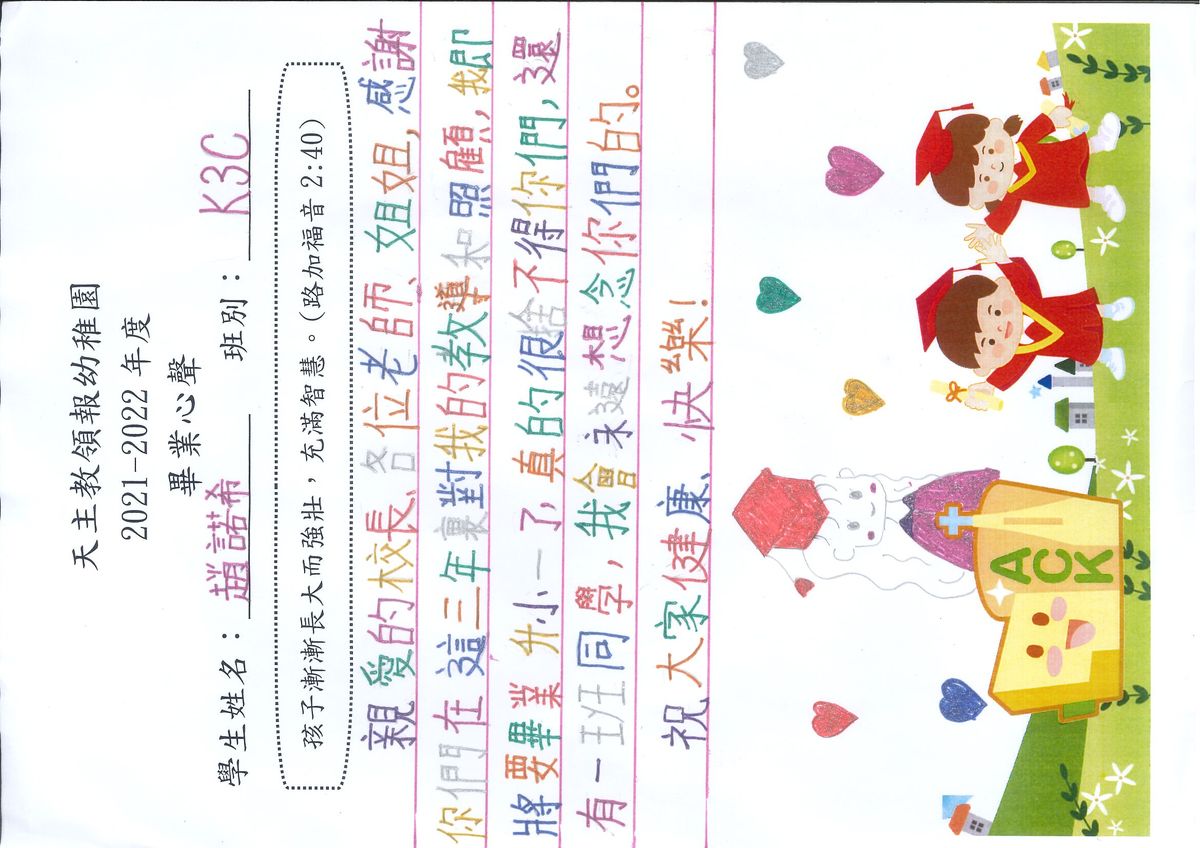 天主教領報幼稚園
2021-2022 年度
畢業心聲
學生姓名：趙諾希 班別：K3C
孩子漸漸長大而強壯，充滿智慧。(路加福音 2:40)
親愛的校長、各位老師、姐姐，感謝
你們在這三年裏對我的教導和照顧，我即
將要畢業 升小一了，真的很捨不得你們，還
有一班同學，我會永遠想念你們的。
祝大家健康、快樂！
ACK